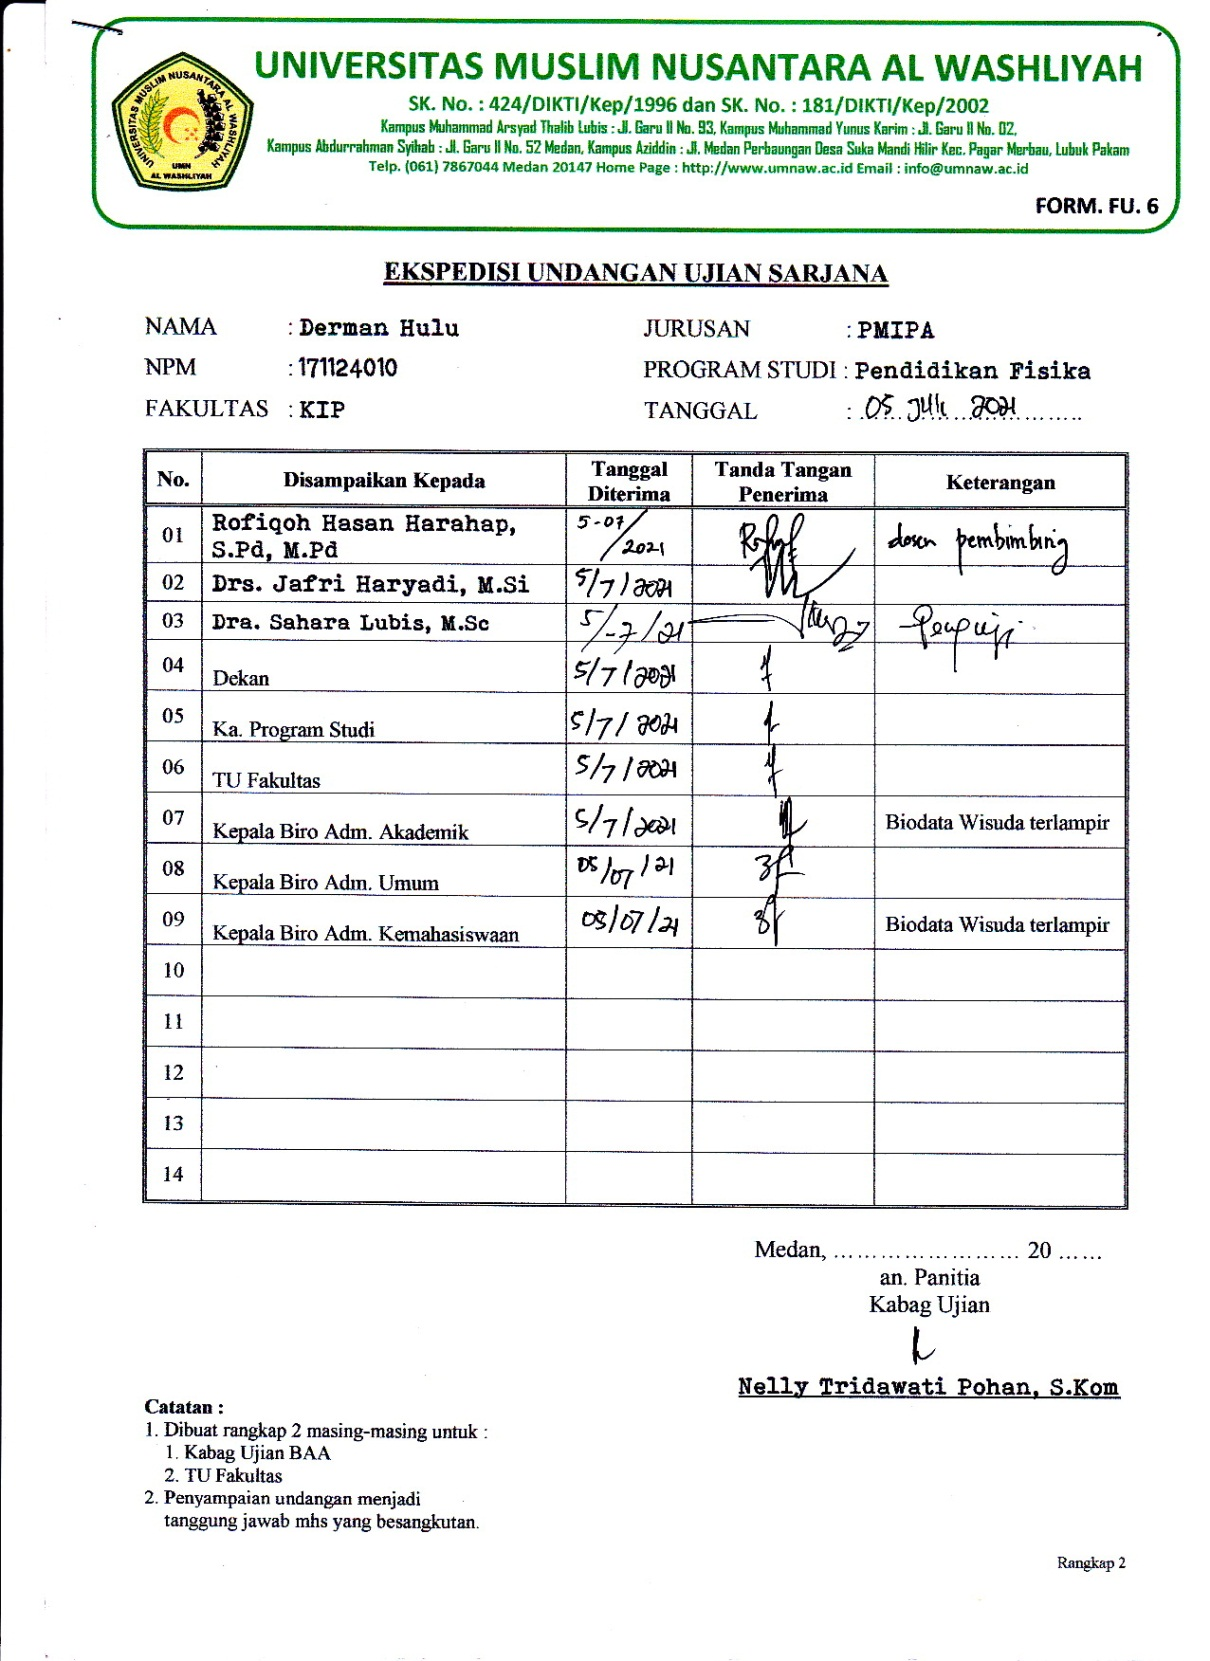 UNIVERSITAS MUSLIM NUSANTARA AL WASHLIYAH
SK. No. : 424/DIKTI/Kep/1996 dan SK. No. : 181/DIKTI/Kep/2002
Kampus Muhammad Arsyad Thalib Lubis : Jl. Garu II No. 93, Kampus Muhammad Yunus Karim : Jl. Garu II No. 02,
Kampus Abdurrahman Syihab : Jl. Garu II No. 52 Medan, Kampus Aziddin : Jl. Medan Perbaungan Desa Suka Mandi Hilir Kec. Pagar Merbau, Lubuk Pakam
Telp. (061) 7867044 Medan 20147 Home Page : http://www.umnaw.ac.id Email : info@umnaw.ac.id
UNIVERSITAS MUSLIM NUSANTARA AL WASHLIYAH
UMN
AL WASHLIYAH
FORM. FU. 6
EKSPEDISI UNDANGAN UJIAN SARJANA
NAMA : Derman Hulu JURUSAN : PMIPA
NPM : 171124010 PROGRAM STUDI : Pendidikan Fisika
FAKULTAS : KIP TANGGAL : 05 Juli 2021
No. Disampaikan Kepada Tanggal Diterima Tanda Tangan Penerima Keterangan
01 Rofiqoh Hasan Harahap, S.Pd, M.Pd 5-07/2021 dosen pembimbing
02 Drs. Jafri Haryadi, M.Si 5/7/2021
03 Dra. Sahara Lubis, M.Sc 5/-7/21 Penguji
04 Dekan 5/7/2021
05 Ka. Program Studi 5/7/2021
06 TU Fakultas 5/7/2021
07 Kepala Biro Adm. Akademik 5/7/2021 Biodata Wisuda terlampir
08 Kepala Biro Adm. Umum 05/07/21
09 Kepala Biro Adm. Kemahasiswaan 05/07/21 Biodata Wisuda terlampir
10
11
12
13
14
Medan, ........................ 20 ......
an. Panitia
Kabag Ujian
Nelly Tridawati Pohan, S.Kom
Catatan :
1. Dibuat rangkap 2 masing-masing untuk :
1. Kabag Ujian BAA
2. TU Fakultas
2. Penyampaian undangan menjadi
tanggung jawab mhs yang besangkutan.
Rangkap 2